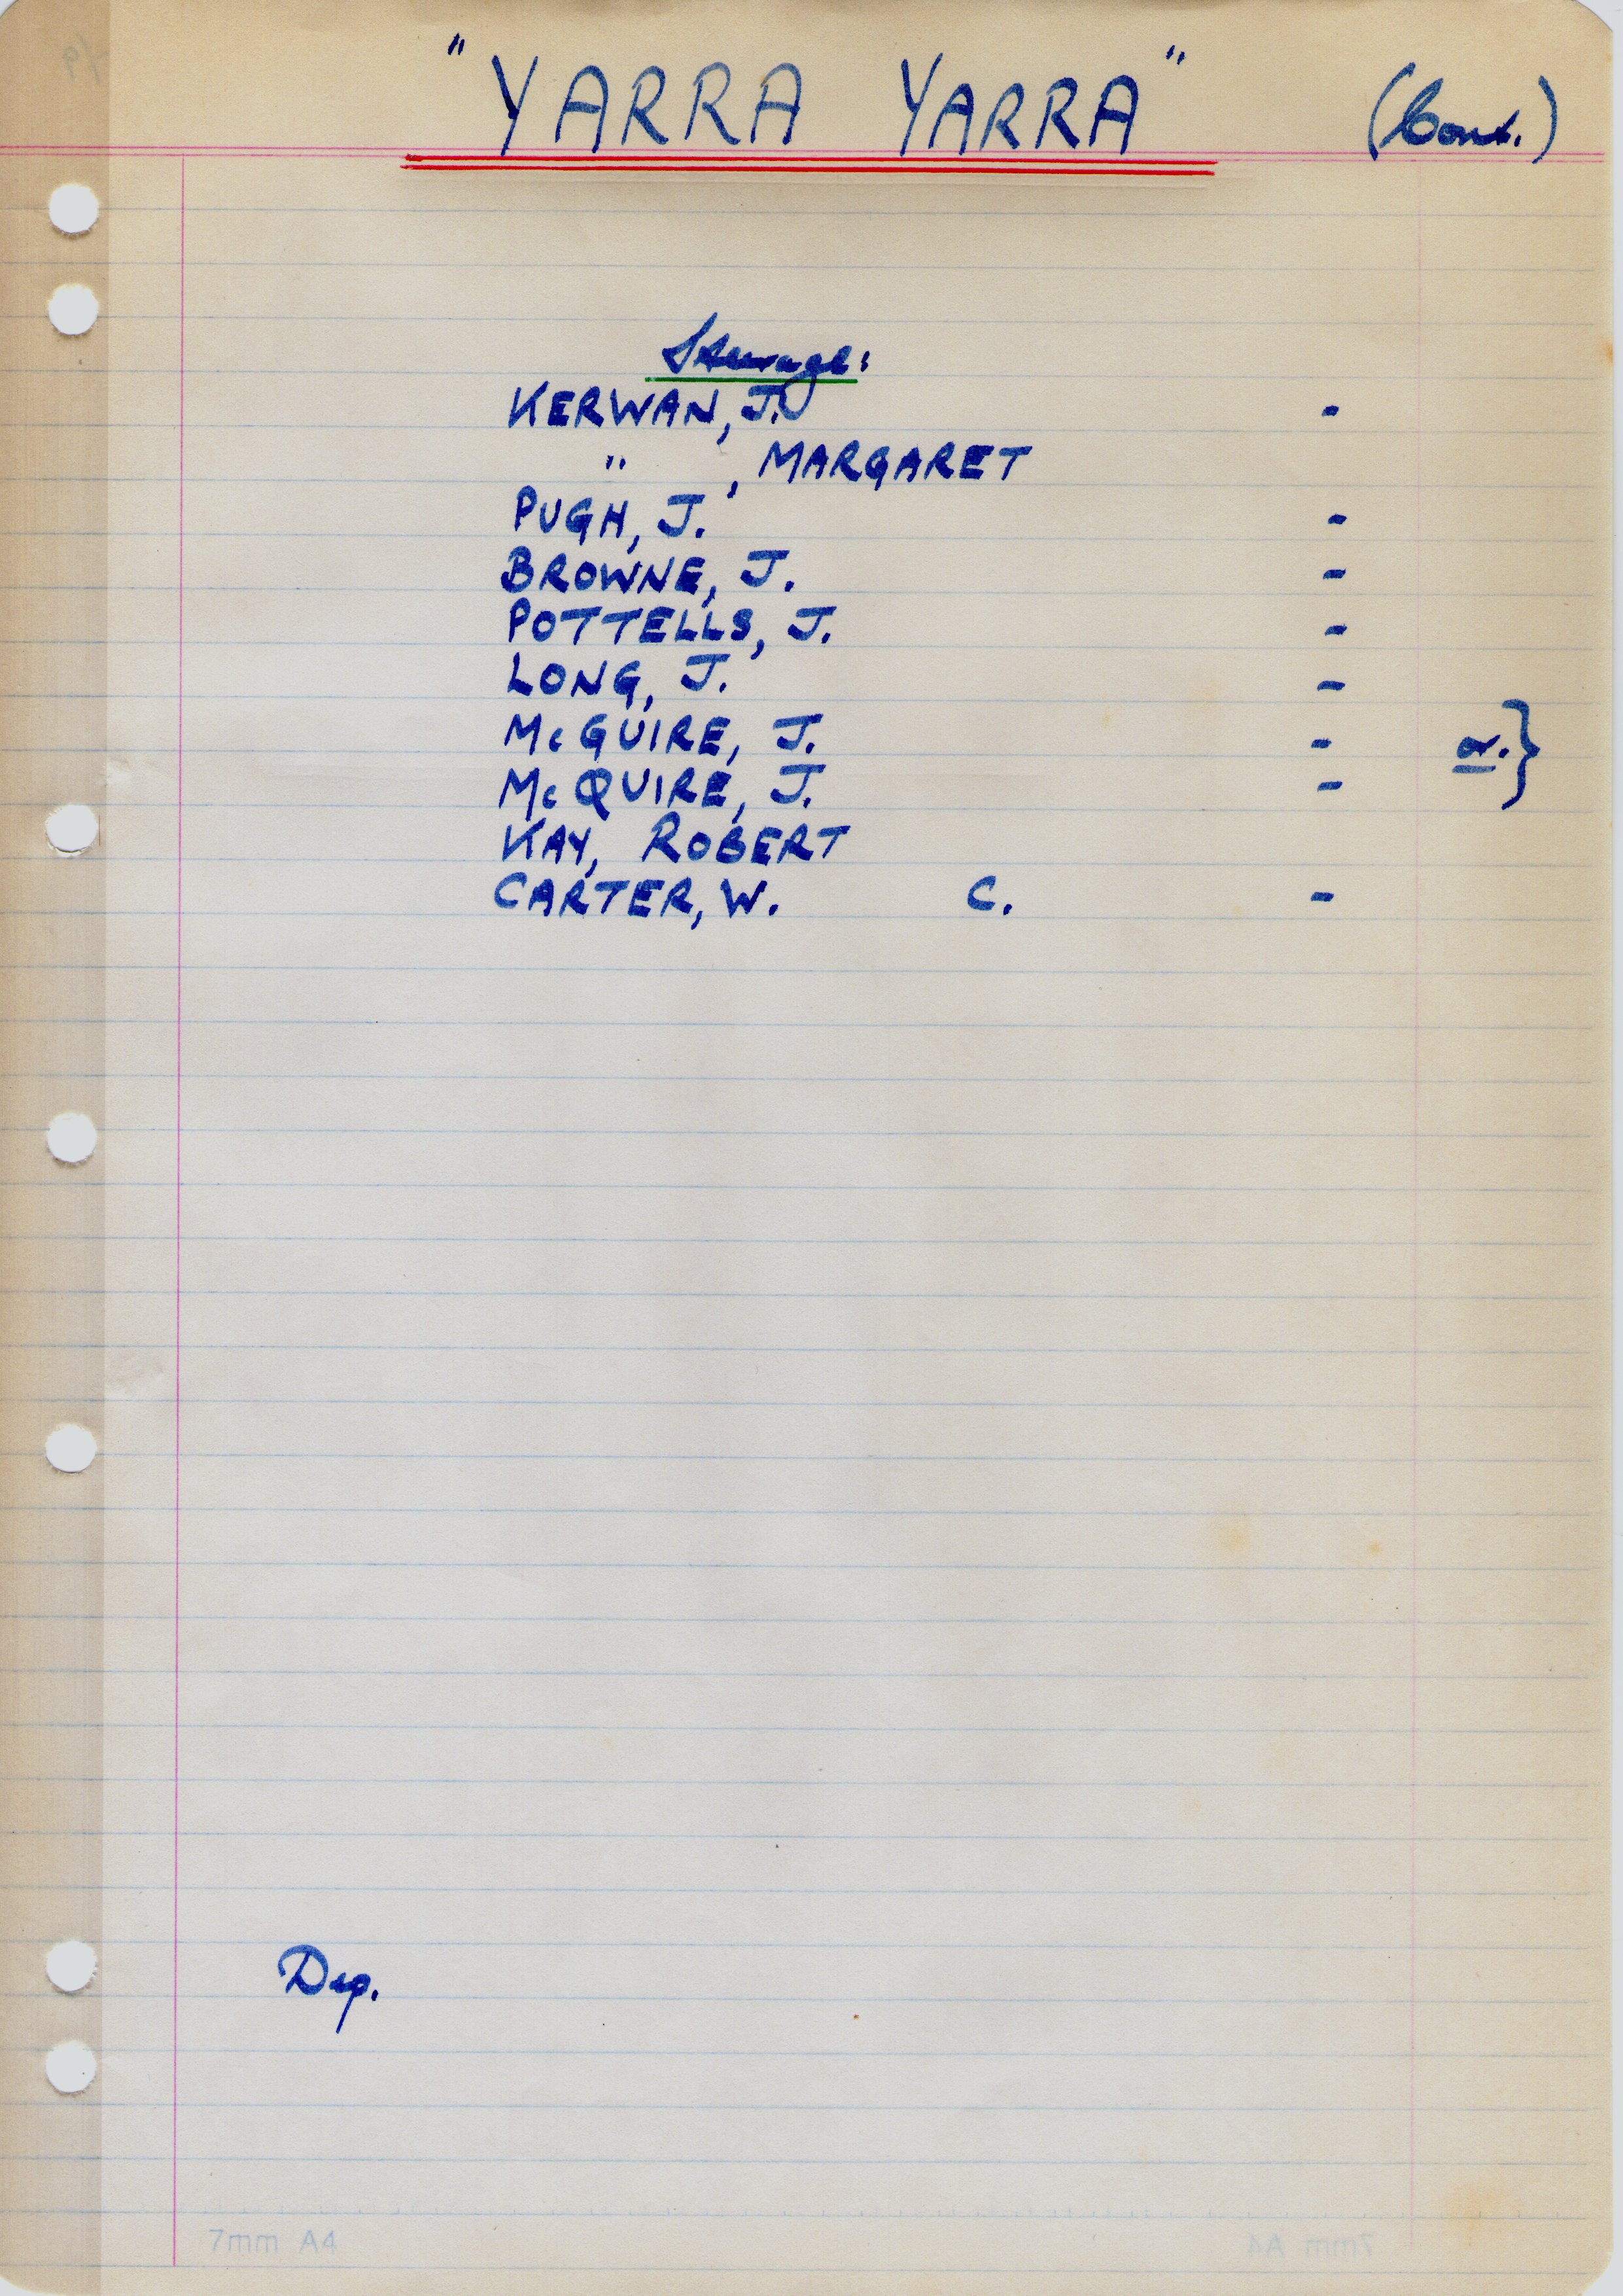 "YARRA YARRA" (Cont.)
Steerage:
KERWAN, J. -
" , MARGARET
PUGH, J. -
BROWNE, J. -
POTTELLS, J. -
LONG, J. -
McGUIRE, J. - or. }
McQUIRE, J. -
KAY, ROBERT
CARTER, W. C. -
Dep.
7mm A4